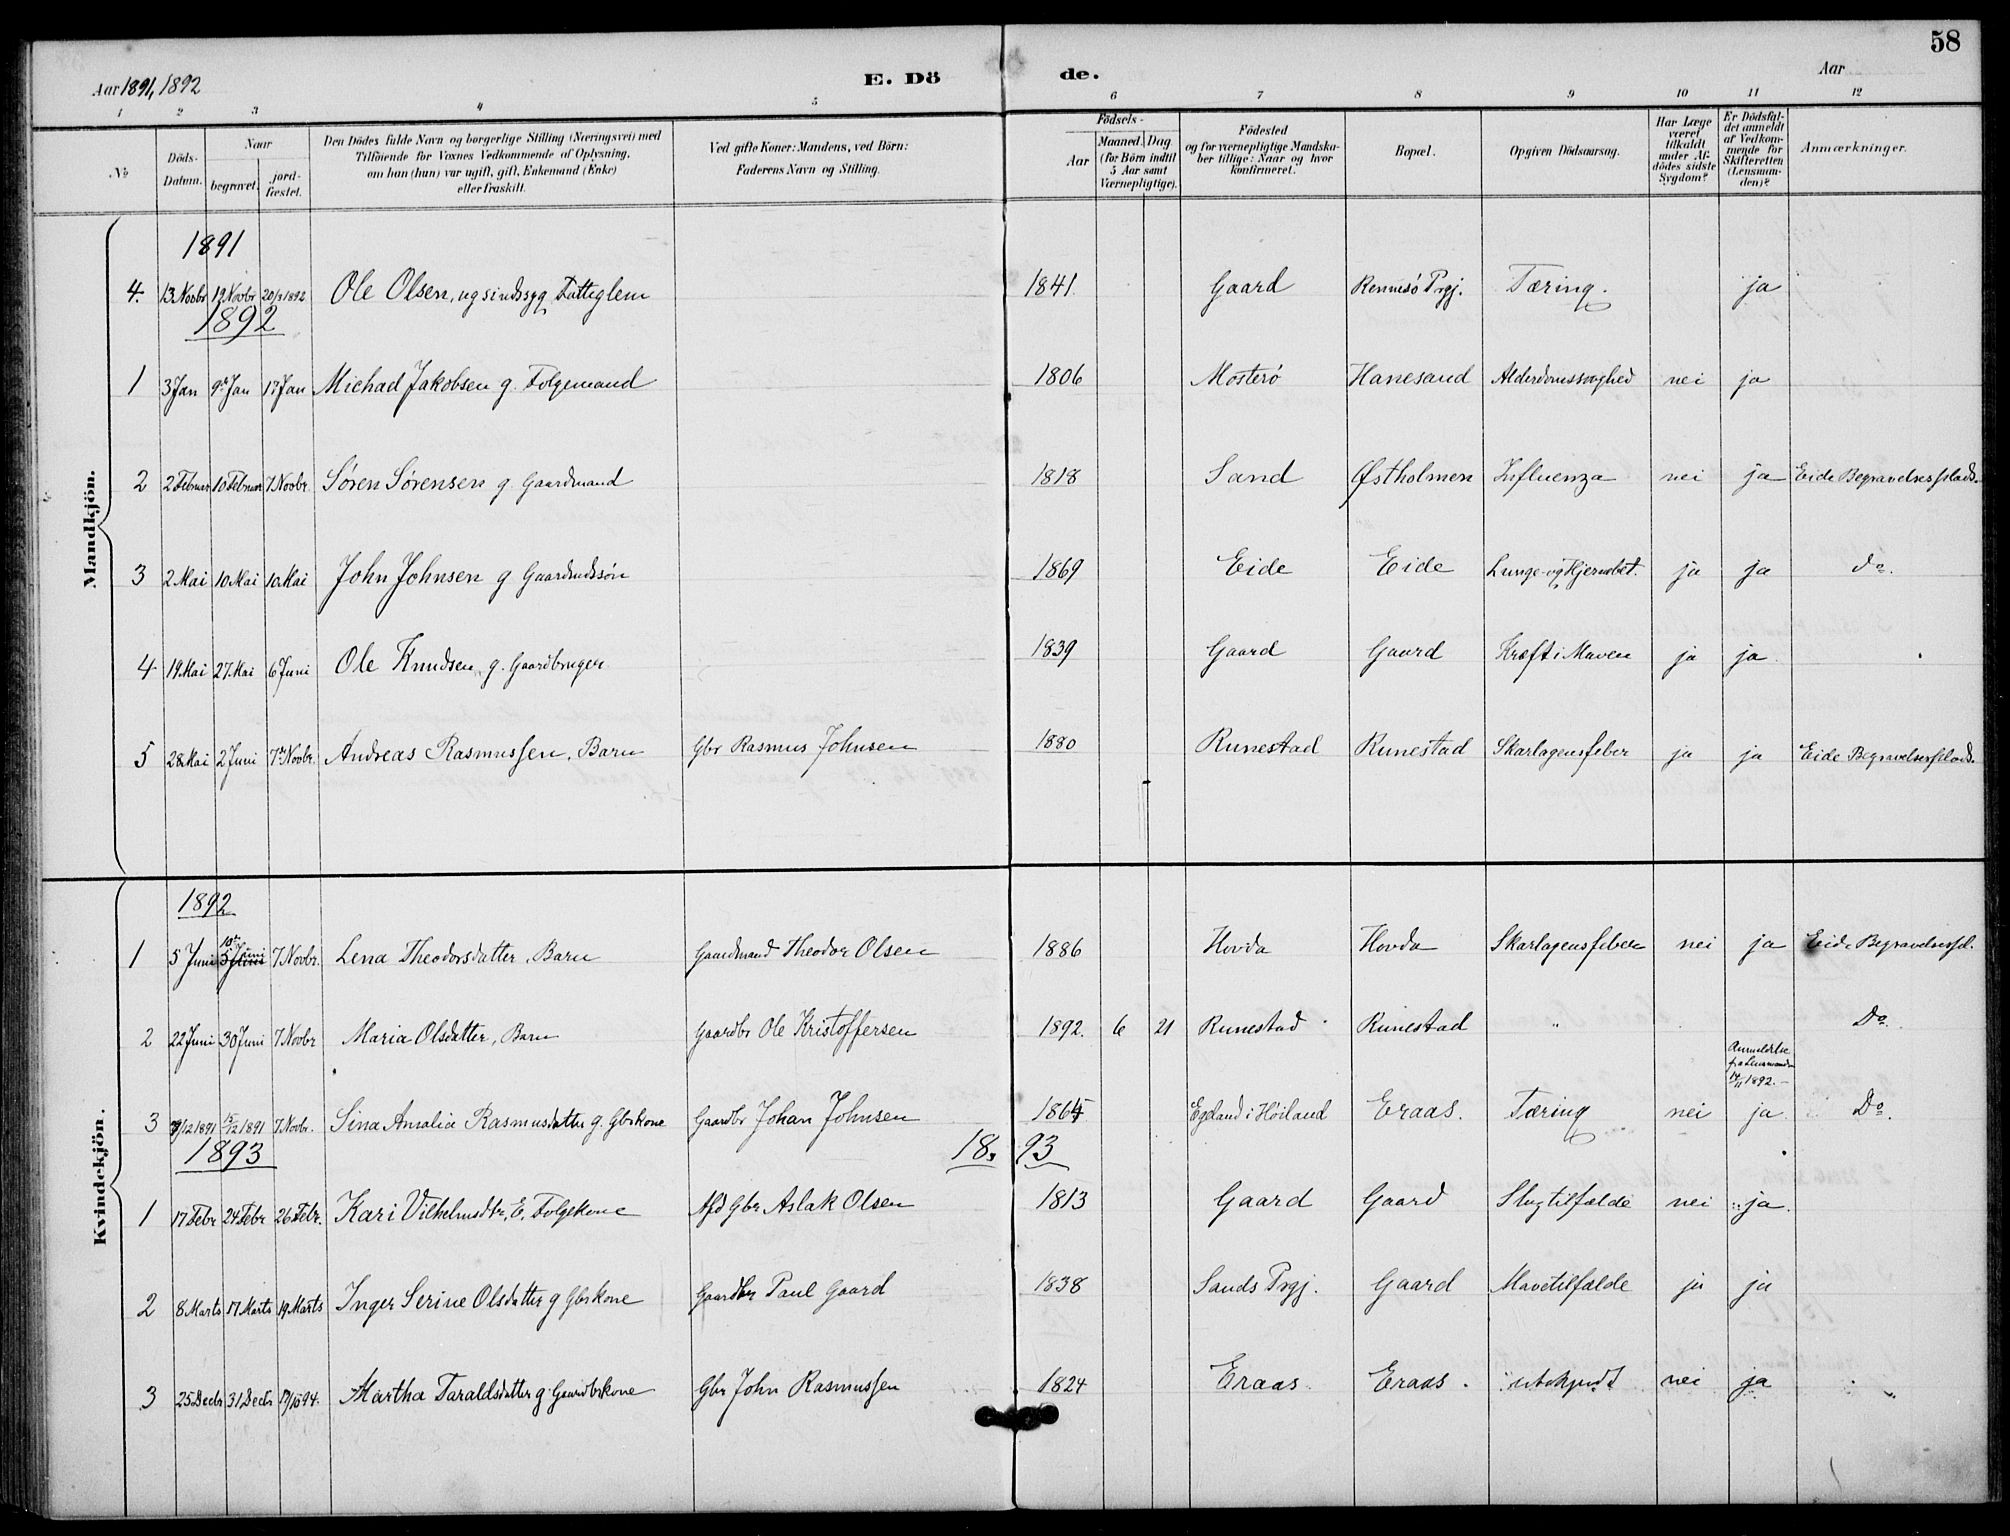 58
Aar 1891, 1892
E. Dö de.
Aar
1 2 3 4 5 6 7 8 9 10 11 12
No
Döds-Datum.
Naar
begravet.
jord-fæstet.
Den Dödes fulde Navn og borgerlige Stilling (Næringsvei) med
Tilföiende for Voxnes Vedkommende af Oplysning,
om han (hun) var ugift, gift, Enkemand (Enke)
eller fraskilt.
Ved gifte Koner: Mandens, ved Börn:
Faderens Navn og Stilling.
Födsels-
Aar
Maaned. Dag.
(for Börn indtil
5 Aar samt
Værnepligtige).
Födested
og for værnepligtige Mandska-
ber tillige: Naar og hvor
konfirmeret.
Bopæl.
Opgiven Dödsaarsag.
Har Læge
været
tilkaldt
under Af-
dödes sidste
Sygdom?
Er Dödsfal-
det anmeldt
af Vedkom-
mende for
Skifteretten
(Lensman-
den)?
Anmærkninger.
Mandkjön.
1891
4. 13 Novbr 19 Novbr 20/3 1892 Ole Olsen, ug sindssyg Fattiglem 1841. Gaard Rennesö Prgj. Tæring. ja
1892
1 3 Jan 9de Jan 17 Jan Michael Jakobsen g. Folgemand 1806 Mosterö Hanesand Alderdomssvaghed nei ja
2 2 Februar 10 Februar 7 Novbr. Søren Sørensen g. Gaardmand 1818 Sand Østholmen Influenza nei ja Eide Begravelsesplads.
3 2 Mai 10 Mai 10 Mai John Johnsen g Gaardmdssön 1869 Eide Eide Lunge- og Hjernebet. ja ja do.
4 19 Mai 27 Mai 6 Juni Ole Knudsen, g. Gaardbruger 1839 Gaard Gaard Kræft i Maven ja ja
5 28 Mai 2 Juni 7de Novbr. Andreas Rasmussen, Barn Gbr Rasmus Johnsen 1880 Runestad Runestad Skarlagensfeber ja ja Eide Begravelsesplads.
Kvindekjön.
1892
1 5 Juni 10de Juni 7 Novbr. Lena Theodorsdatter, Barn Gaardmand Theodor Olsen 1886 Hovda Hovda Skarlagensfeber nei ja Eide Begravelsespl.
2 22 Juni 30 Juni 7 Novbr Maria Olsdatter, Barn Gaardbr Ole Kristoffersen 1892. 6 21 Runestad Runestad " Do.
Anmeldelse
fra Lensmanden
14/11 1892.
3 9/12 1891 15/12 1891 7 Novbr. Sina Amalia Rasmusdatter g. Gbrkone Gaardbr Johan Johnsen 1864 Egeland i Høiland Eraas. Tæring nei ja. Do.
1893 1893
1 17 Febr 24 Febr 26 Febr. Kari Vilhelmsdtr, E. Folgekone Afd Gbr Aslak Olsen 1813 Gaard Gaard Slagtilfælde nei ja.
2 8 Marts 17 Marts 19 Marts Inger Serine Olsdatter g Gbrkone Gaardbr Paul Gaard 1838 Sands Prgj. Gaard Mavetilfælde ja ja
3 25 Decbr 31 Decbr 94. Martha Taraldsdatter g Gaardbrkone Gbr John Rasmussen 1824 Eraas Eraas. ubekjendt nei ja